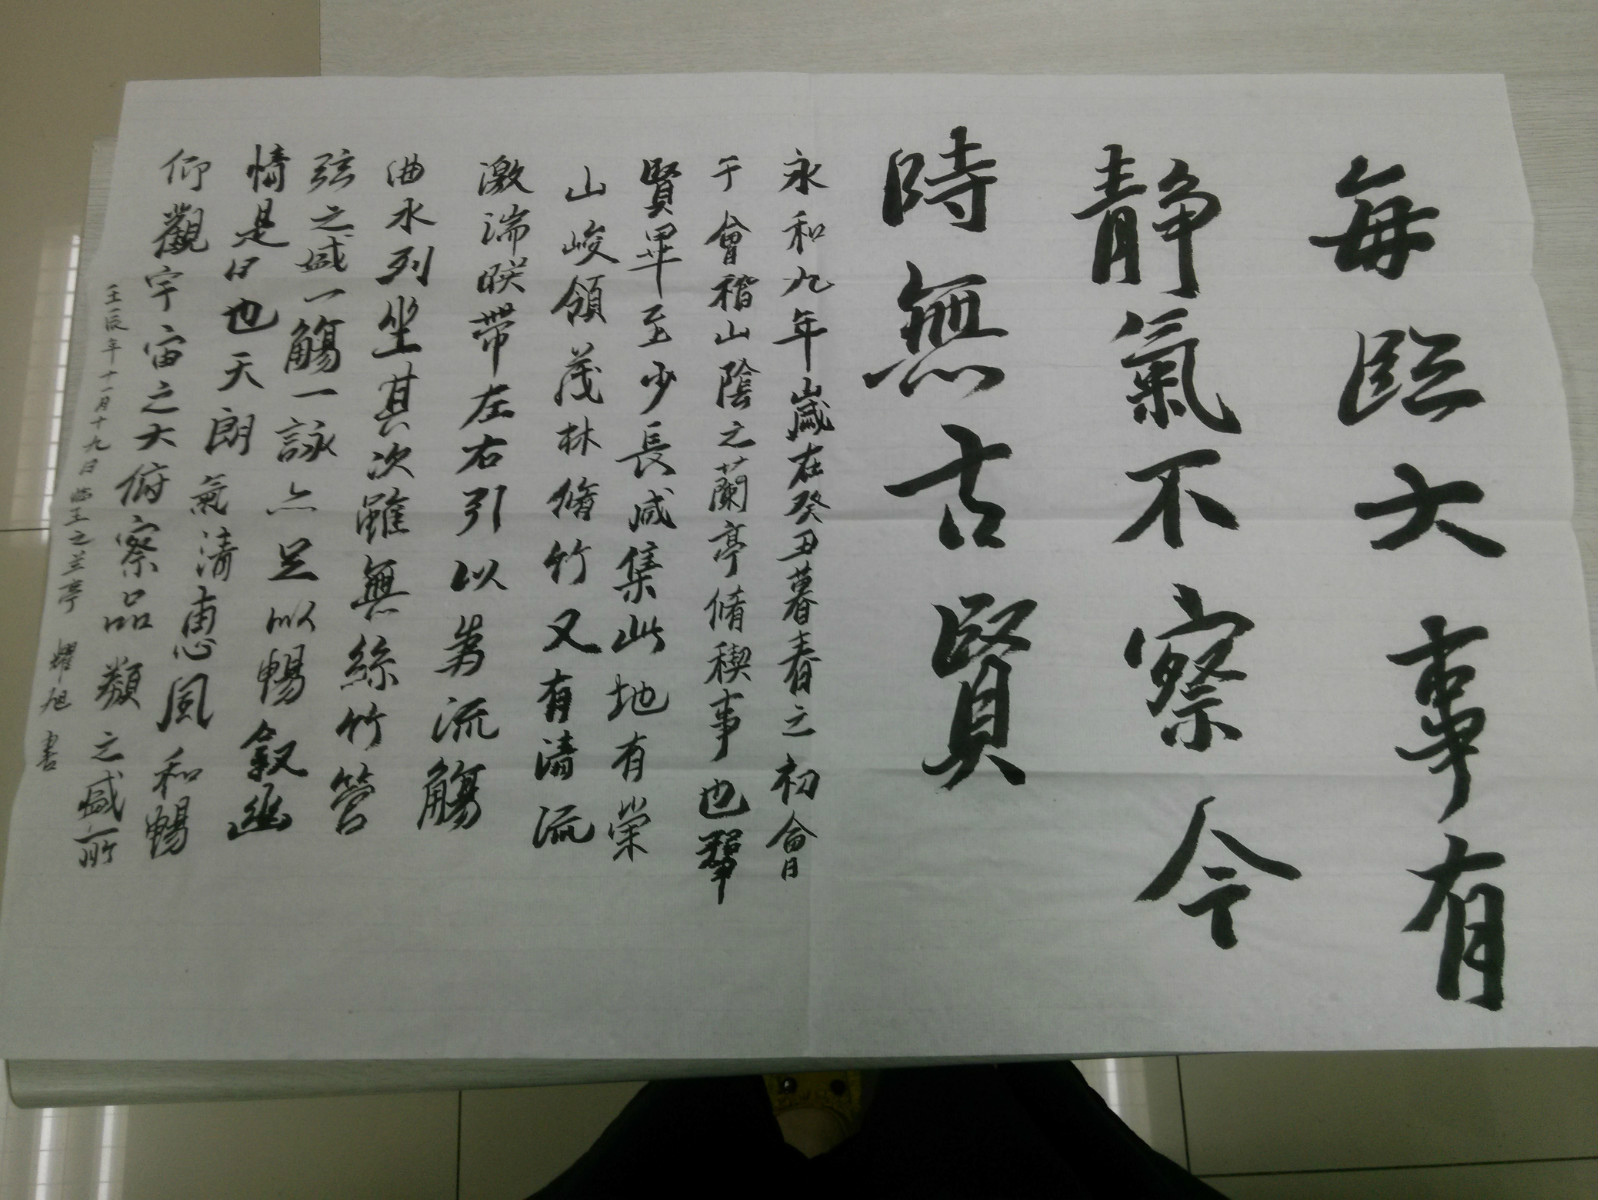 每臨大事有
靜氣不察今
時無古賢
永和九年歲在癸丑暮春之初會
于會稽山陰之蘭亭脩稧事也群
賢畢至少長咸集此地有崇
山峻領茂林脩竹又有清流
激湍暎帶左右引以為流觴
曲水列坐其次雖無絲竹管
弦之盛一觴一詠亦足以暢叙幽
情是日也天朗氣清惠風和暢
仰觀宇宙之大俯察品類之盛所
壬辰年十一月十九日临王之兰亭 耀旭書